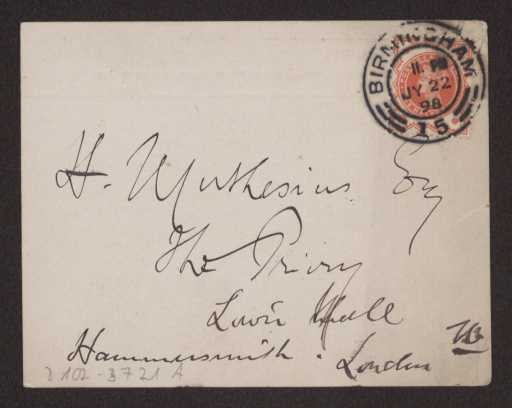 BIRMINGHAM
JY 22
98
15
H. Muthesius Esq
The Priory
Lower Mall
Hammersmith. London
W